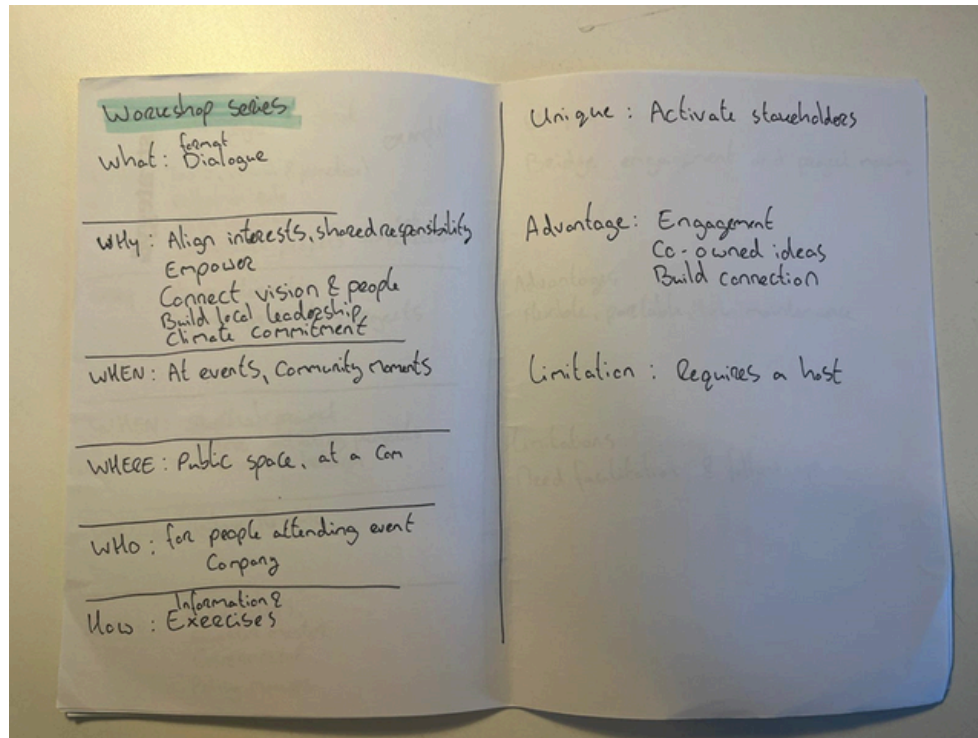 Workshop series
format
What: Dialogue
WHy: Align interests, shared responsibility
Empower
Connect vision & people
Build local leadership,
Climate commitment
WHEN: At events, Community Moments
WHERE: Public space, at a Com
WHO: for people attending event
Company
Information &
How: Exercises
Unique: Activate stakeholders
Advantage: Engagement
Co-owned ideas
Build connection
Limitation: Requires a host